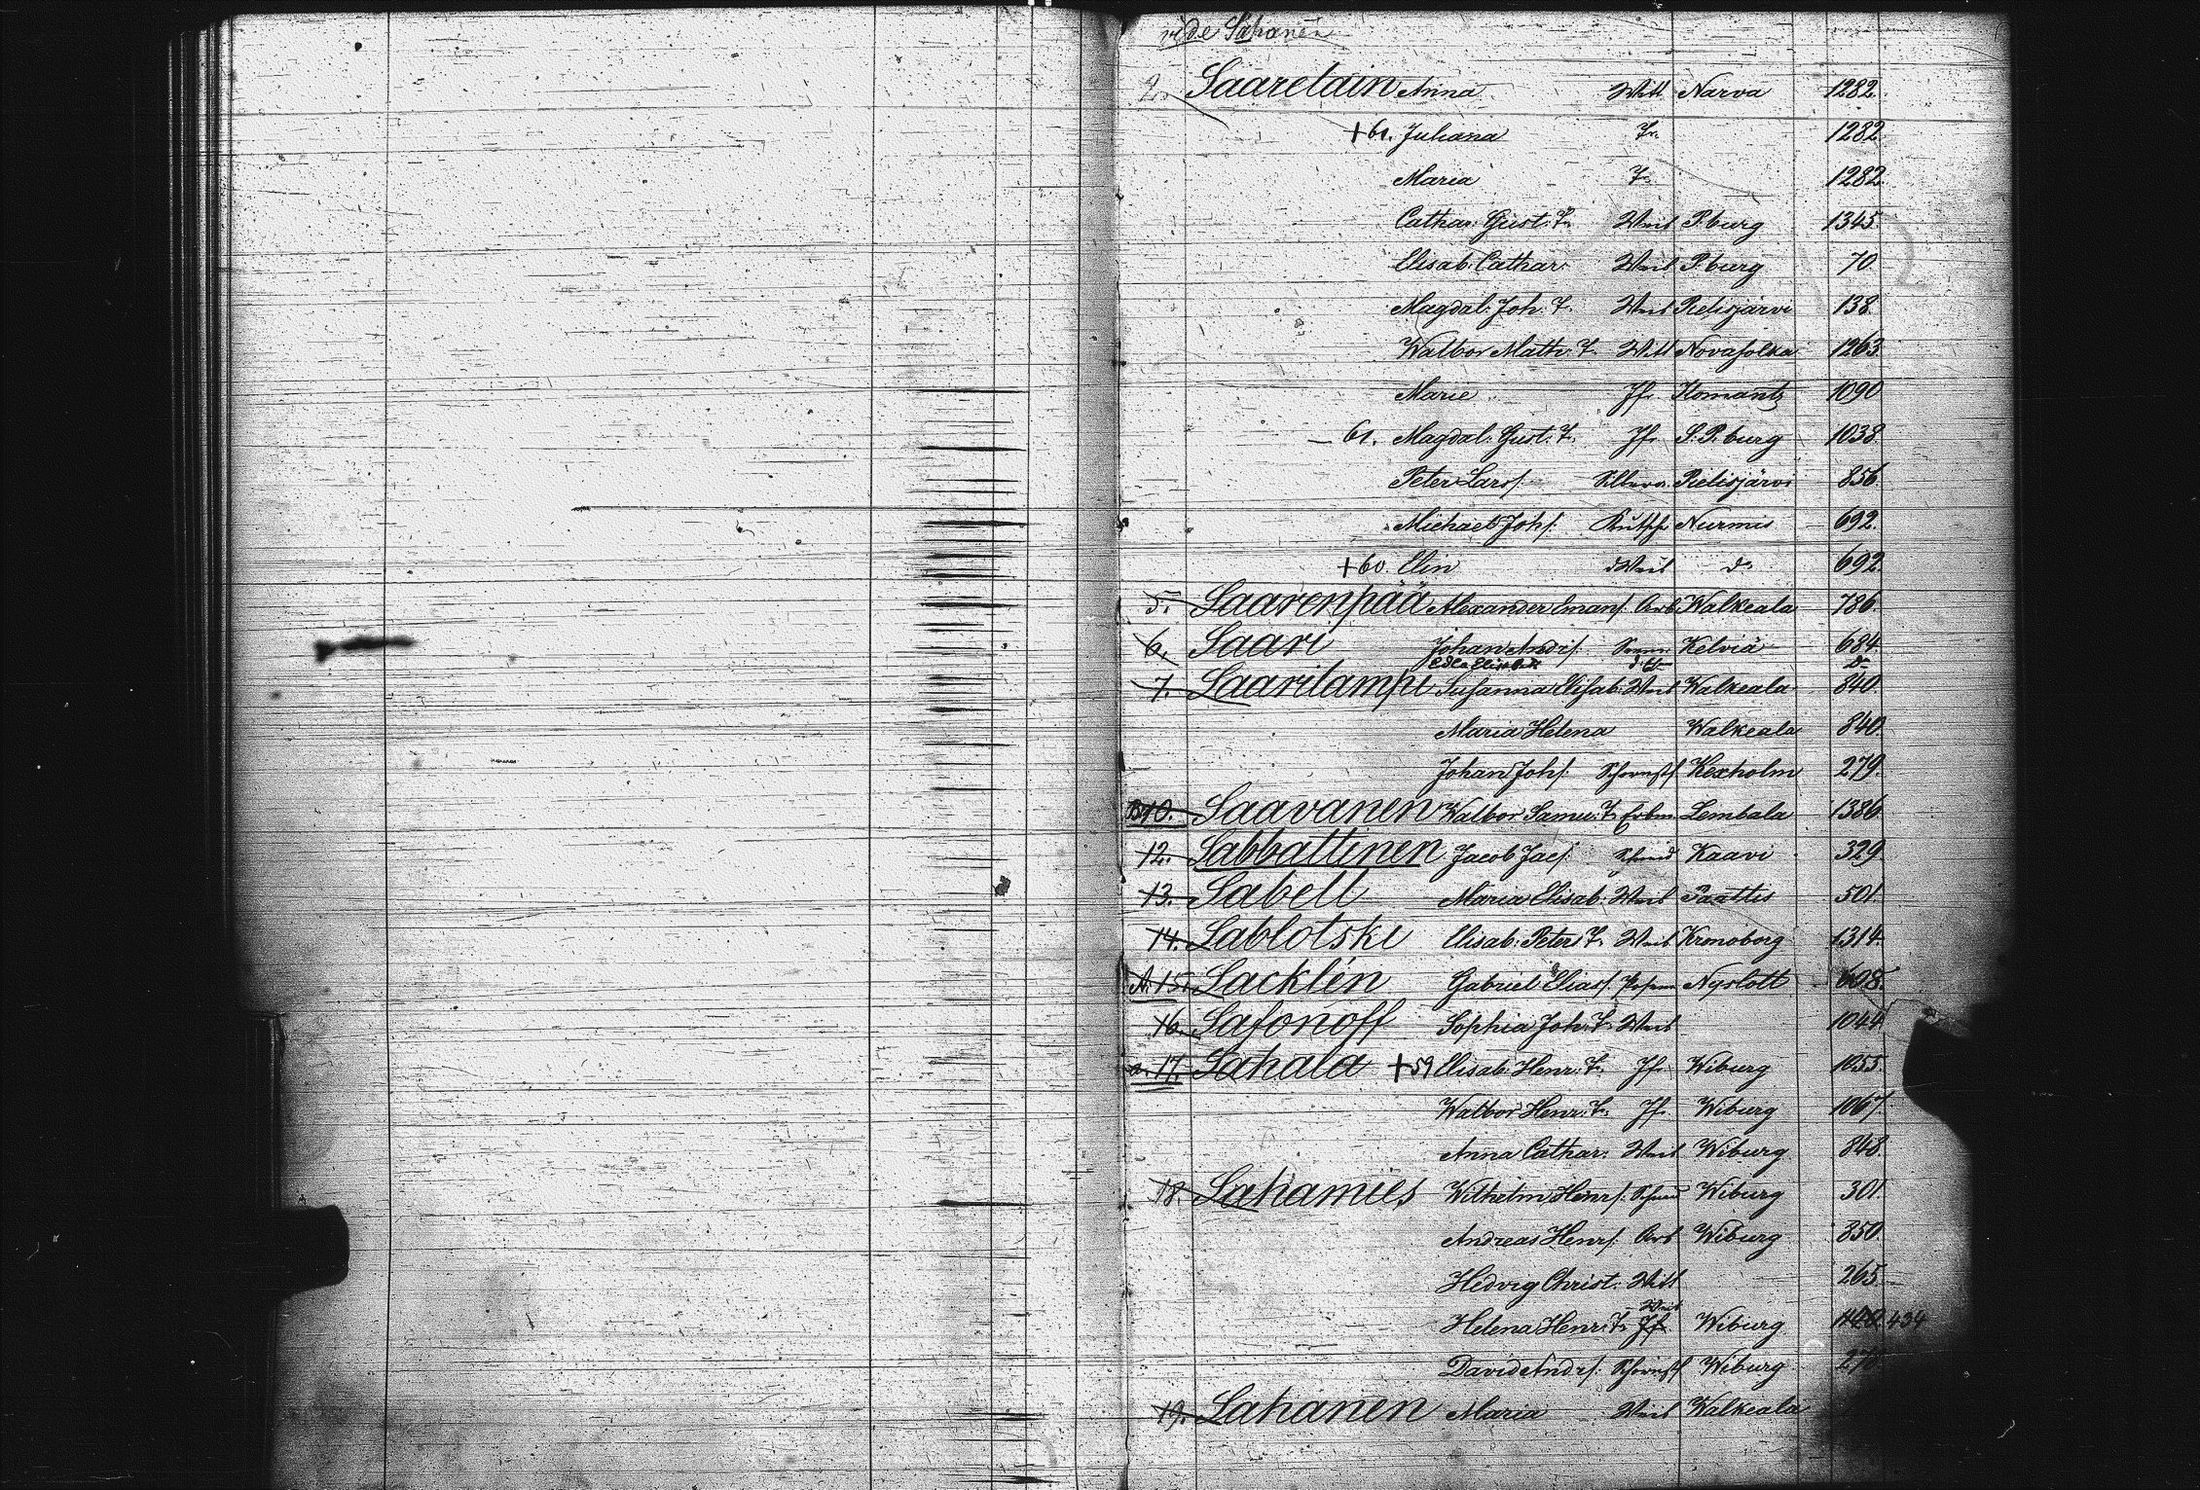 vide Sahanen
2. Saarelain Anna Witt Narva 1282.
+61. Juliana Fr. 1282
Maria Fr. 1282
Cathar. Gust. T. Weib P.burg 1345.
Elisab. Cathar. Weib P.burg 70
Magdal. Joh. T. Weib Pielisjärvi 138.
Walbor Math. T. Witt Novasolka 1263
Marie Jf. Ilomantz 1090
61. Magdal. Gust. T. Jf. S.P.burg 1038.
Peter Larsf. Pielisjärvi 856.
Michael Johsf. Kutsch. Nurmis 692.
+60. Elin dWeib do 692.
5. Saarenpää Alexander Emanf. Arb. Walkeala 786.
6. Saari Johan Andrsf. Kelviä 684.
Edla Elisabet do
7. Saarilampi Susanna Elisab. Weib Walkeala 840.
Maria Helena Walkeala 840
Johan Johsf. Schornstf. Kexholm 279.
B 10. Saavanen Walbor Samu. T. Erbm. Lembala 1386
12. Sabbattinen Jacob Jacf. Schmid Kaavi 329
13. Sabell Maria Elisab. Weib Paattis 501.
14. Sablotski Elisab. Peter T. Weib Kronoborg 1314
A. 15. Sacklén Gabriel Eliasf. Nyslott 608.
16. Safonoff Sophia Joh. T. Weib 1044
a. 17. Sahala +59 Elisab. Henr. T. Jf. Wiburg 1055.
Walbor Henr. T. Jf. Wiburg 1067.
Anna Cathar. Weib Wiburg 848.
18. Sahamies Wilhelm Henrf. Schmid Wiburg 301.
Andreas Henrf. Arb Wiburg 350.
Hedvig Christ. Witt 265.
Weib
Helena Henr. T. Jf. Wiburg 1140. 434
David Andrf. Schornstf Wiburg 278.
19. Sahanen Maria Weib Walkeala